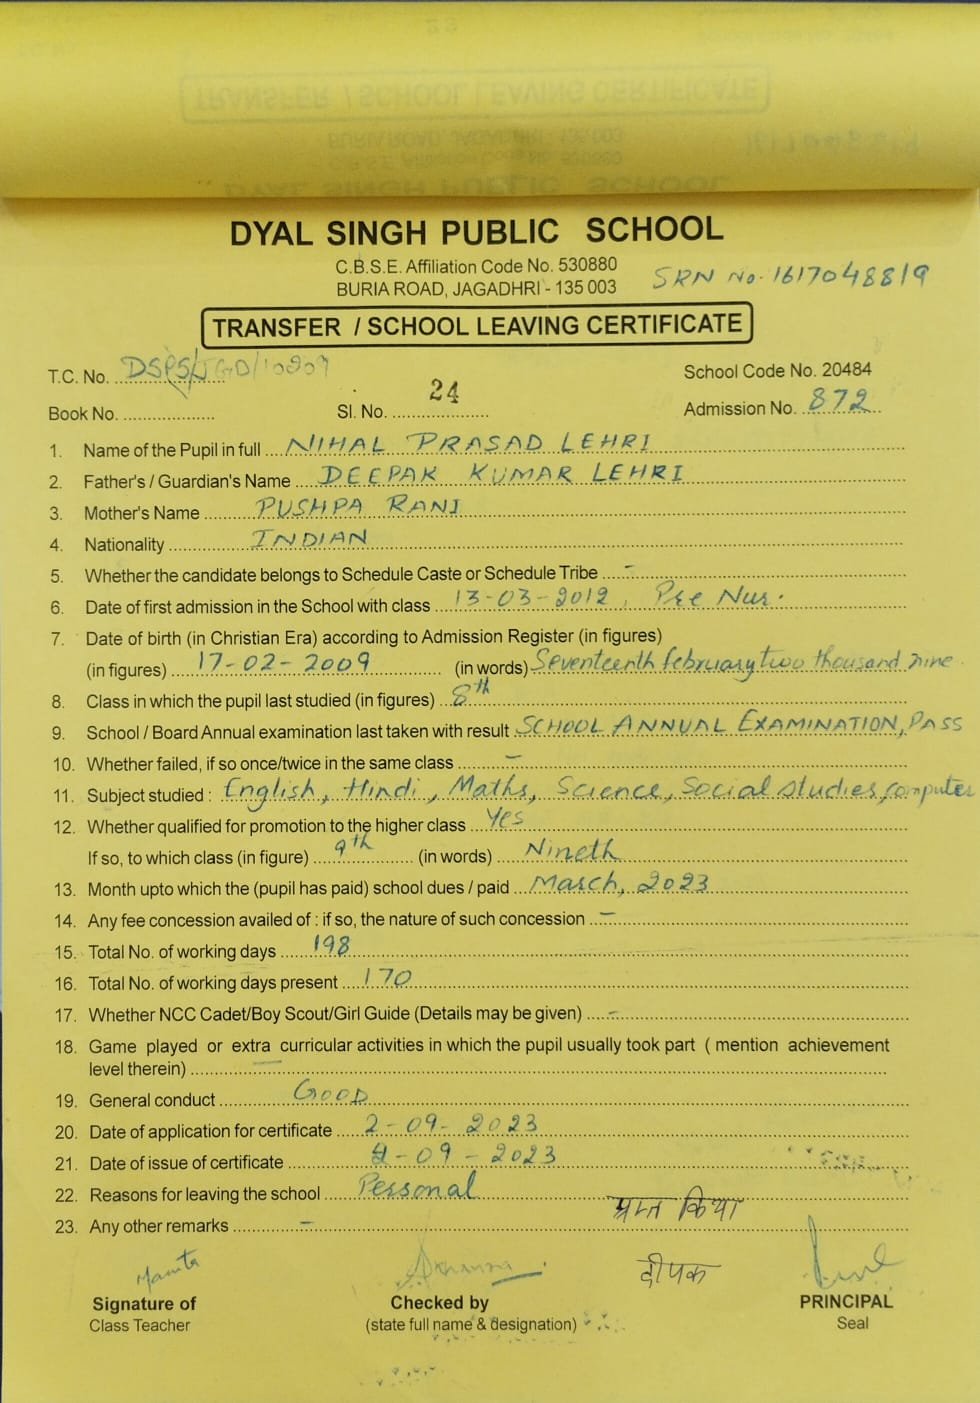 DYAL SINGH PUBLIC SCHOOL
C.B.S.E. Affiliation Code No. 530880
SRN No. 1617048819
BURIA ROAD, JAGADHRI - 135 003
TRANSFER / SCHOOL LEAVING CERTIFICATE
T.C. No. DSPS/JGD/10909
School Code No. 20484
Book No. Sl. No. 24 Admission No. 872
1. Name of the Pupil in full NIHAL PRASAD LEHRI
2. Father's / Guardian's Name DEEPAK KUMAR LEHRI
3. Mother's Name PUSHPA RANI
4. Nationality INDIAN
5. Whether the candidate belongs to Schedule Caste or Schedule Tribe -
6. Date of first admission in the School with class 13-03-2012, Pre Nur.
7. Date of birth (in Christian Era) according to Admission Register (in figures)
(in figures) 17-02-2009 (in words) Seventeenth february two thousand nine
8. Class in which the pupil last studied (in figures) 8th
9. School / Board Annual examination last taken with result SCHOOL ANNUAL EXAMINATION, PASS
10. Whether failed, if so once/twice in the same class -
11. Subject studied : English, Hindi, Maths, Science, Social studies, computer
12. Whether qualified for promotion to the higher class Yes
If so, to which class (in figure) 9th (in words) Nineth
13. Month upto which the (pupil has paid) school dues / paid March, 2023
14. Any fee concession availed of : if so, the nature of such concession -
15. Total No. of working days 198
16. Total No. of working days present 170
17. Whether NCC Cadet/Boy Scout/Girl Guide (Details may be given) -
18. Game played or extra curricular activities in which the pupil usually took part ( mention achievement
level therein) -
19. General conduct GOOD
20. Date of application for certificate 2-09-2023
21. Date of issue of certificate 4-09-2023
22. Reasons for leaving the school Personal
प्राप्त किया
23. Any other remarks -
Mamta
दीपक
Signature of Checked by PRINCIPAL
Class Teacher (state full name & designation) Seal